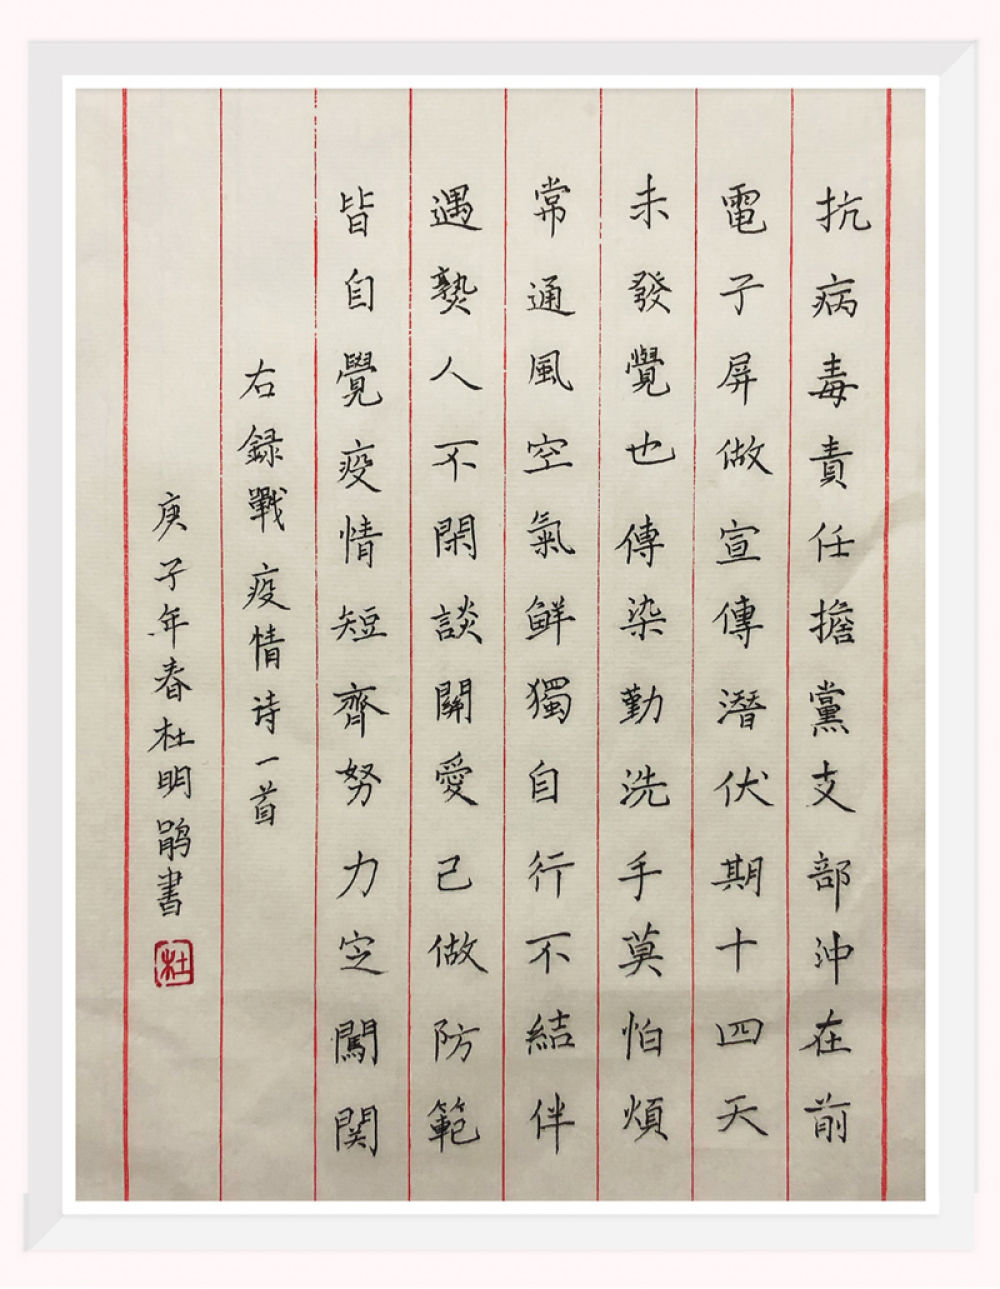 抗病毒責任擔黨支部沖在前
電子屏做宣傳潛伏期十四天
未發覺也傳染勤洗手莫怕煩
常通風空氣鲜獨自行不結伴
遇爇人不閑談關愛己做防範
皆自覺疫情短齊努力定闖関
右録戰疫情诗一首
庚子年春杜明鹃書
杜